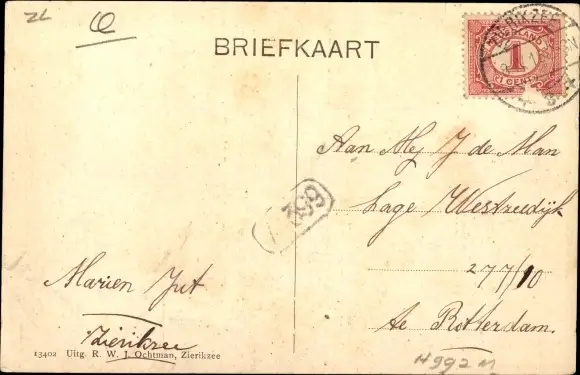 ZL
BRIEFKAART
ZIERIKZEE
1
CENT
Aan Mej J de Man
Lage Westzeedijk
277/10
te Rotterdam.
Marien Jut
Zierikzee
13402 Uitg. R. W. J. Ochtman, Zierikzee
H992M